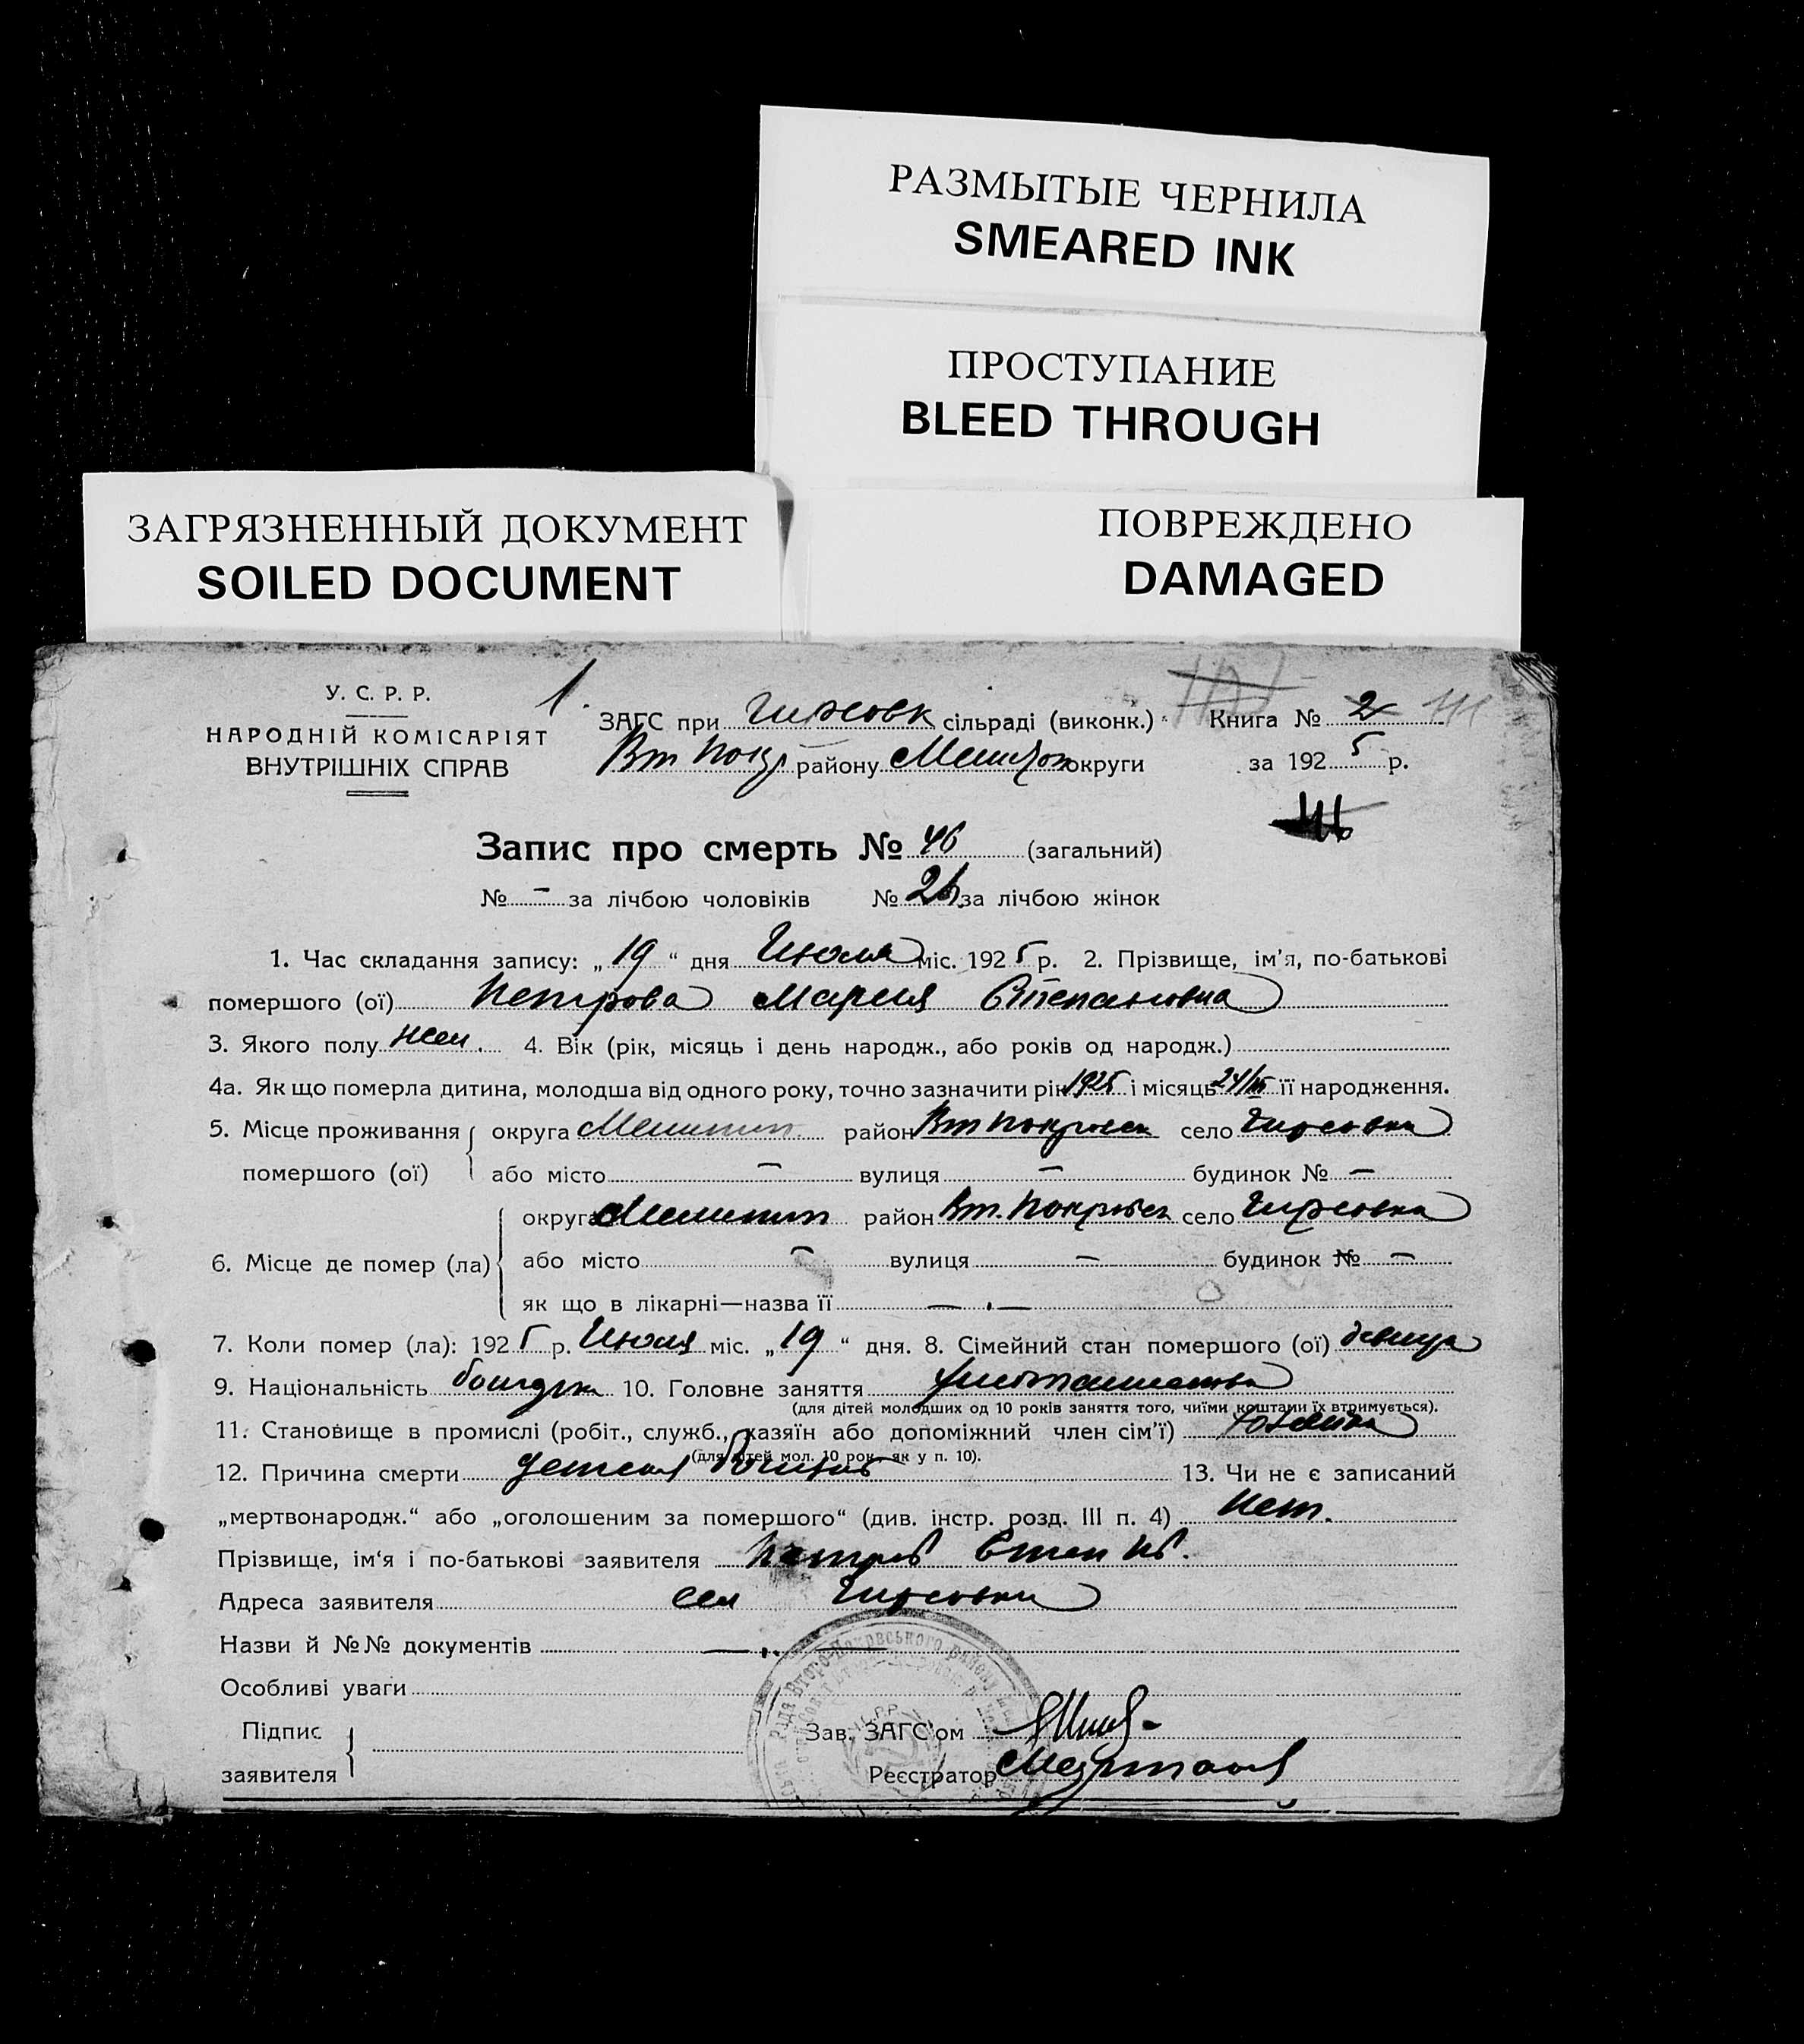 РАЗМЫТЫЕ ЧЕРНИЛА
SMEARED INK
ПРОСТУПАНИЕ
BLEED THROUGH
ЗАГРЯЗНЕННЫЙ ДОКУМЕНТ
SOILED DOCUMENT
ПОВРЕЖДЕНО
DAMAGED
У. С. Р. Р.
НАРОДНІЙ КОМІСАРІЯТ
ВНУТРІШНІХ СПРАВ
1.
ЗАГС при Гирсовк сільраді (виконк.)
Вт Покр району Мелітоп округи
Книга № 2
за 1925 р.
Запис про смерть № 46 (загальний)
№ - за лічбою чоловіків № за лічбою жінок
1. Час складання запису: „19“ дня Июля міс. 1925 р. 2. Прізвище, ім'я, по-батькові
помершого (ої) Петрова Мария Степановна
3. Якого полу жен. 4. Вік (рік, місяць і день народж., або років од народж.)
4а. Як що померла дитина, молодша від одного року, точно зазначити рік 1925 і місяць 24/III її народження.
5. Місце проживання помершого (ої) округа Мелитоп район Вт Покровск село Гирсовка
або місто — вулиця — будинок № —
6. Місце де помер (ла) округа Мелитоп район Вт. Покровск село Гирсовка
або місто — вулиця — будинок № —
як що в лікарні—назва її — . —
7. Коли помер (ла): 1925 р. Июля міс. „19“ дня. 8. Сімейний стан помершого (ої) девица
9. Національність болгарка 10. Головне заняття
(для дітей молодших од 10 років заняття того, чиїми коштами їх втримується).
11. Становище в промислі (робіт., служб., хазяїн або допоміжний член сім'ї)
(для дітей мол. 10 рок., як у п. 10).
12. Причина смерти детская 13. Чи не є записаний
„мертвонародж.“ або „оголошеним за помершого“ (див. інстр. розд. III п. 4) Нет.
Прізвище, ім'я і по-батькові заявителя Петров Степ Ив.
Адреса заявителя сел Гирсовка
Назви й №№ документів — . —
Особливі уваги
Підпис заявителя
Зав. ЗАГС'ом
Реєстратор